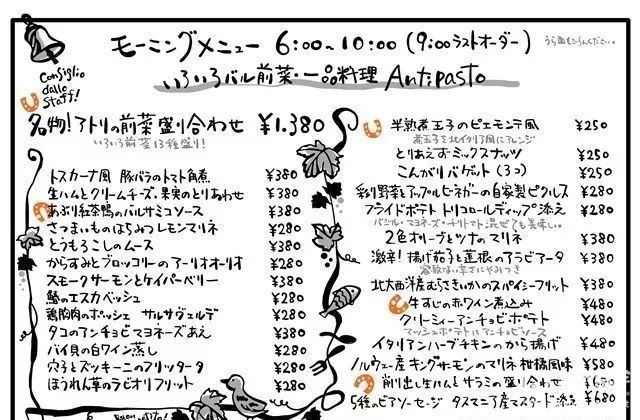 モーニングメニュー 6:00~10:00 (9:00ラストオーダー)
うら面もごらんください。
consiglio
dallo
staff!
いろいろバル前菜・一品料理 Antipasto
名物!アトリの前菜盛り合わせ ¥1.380
いろいろ前菜13種盛り!
トスカーナ風 豚バラのトマト角煮 ¥380
生ハムとクリームチーズ、果実のとりあわせ ¥380
あぶり紅茶鴨のバルサミコソース ¥380
さつまいものはちみつレモンマリネ ¥280
とうもろこしのムース ¥380
からすみとブロッコリーのアーリオオーリオ ¥280
スモークサーモンとケイパーベリー ¥380
鯵のエスカベッシュ ¥280
鶏胸肉のボッシュ サルサヴェルデ ¥280
タコのアンチョビマヨネーズあえ ¥380
バイ貝の白ワイン蒸し ¥280
穴子とズッキーニのフリッタータ ¥280
ほうれん草のラビオリフリット ¥280
半熟煮玉子のピエモンテ風 ¥250
煮玉子を北イタリア風にアレンジ
とりあえずミックスナッツ ¥250
こんがりバゲット(3つ) ¥250
彩り野菜とアップルビネガーの自家製ピクルス ¥280
フライドポテト トリコロールディップ添え ¥280
バジル・マヨネーズ・チリトマト混ぜても美味しい。
2色オリーブとツナのマリネ ¥380
激辛!揚げ茄子と蓮根のアラビアータ ¥380
容赦ない辛さにやみつき
北大西洋産むらさきいかのスパイシーフリット ¥380
牛すじの赤ワイン煮込み ¥480
クリーミィーアンチョビポテト ¥480
マッシュポテトにアンチョビソース
イタリアンハーブチキンのから揚げ ¥480
ノルウェー産キングサーモンのマリネ 柑橘風味 ¥580
削り出し生ハムとサラミの盛り合わせ ¥680
5種のビアソーセージ タスマニア産マスタード添え ¥680